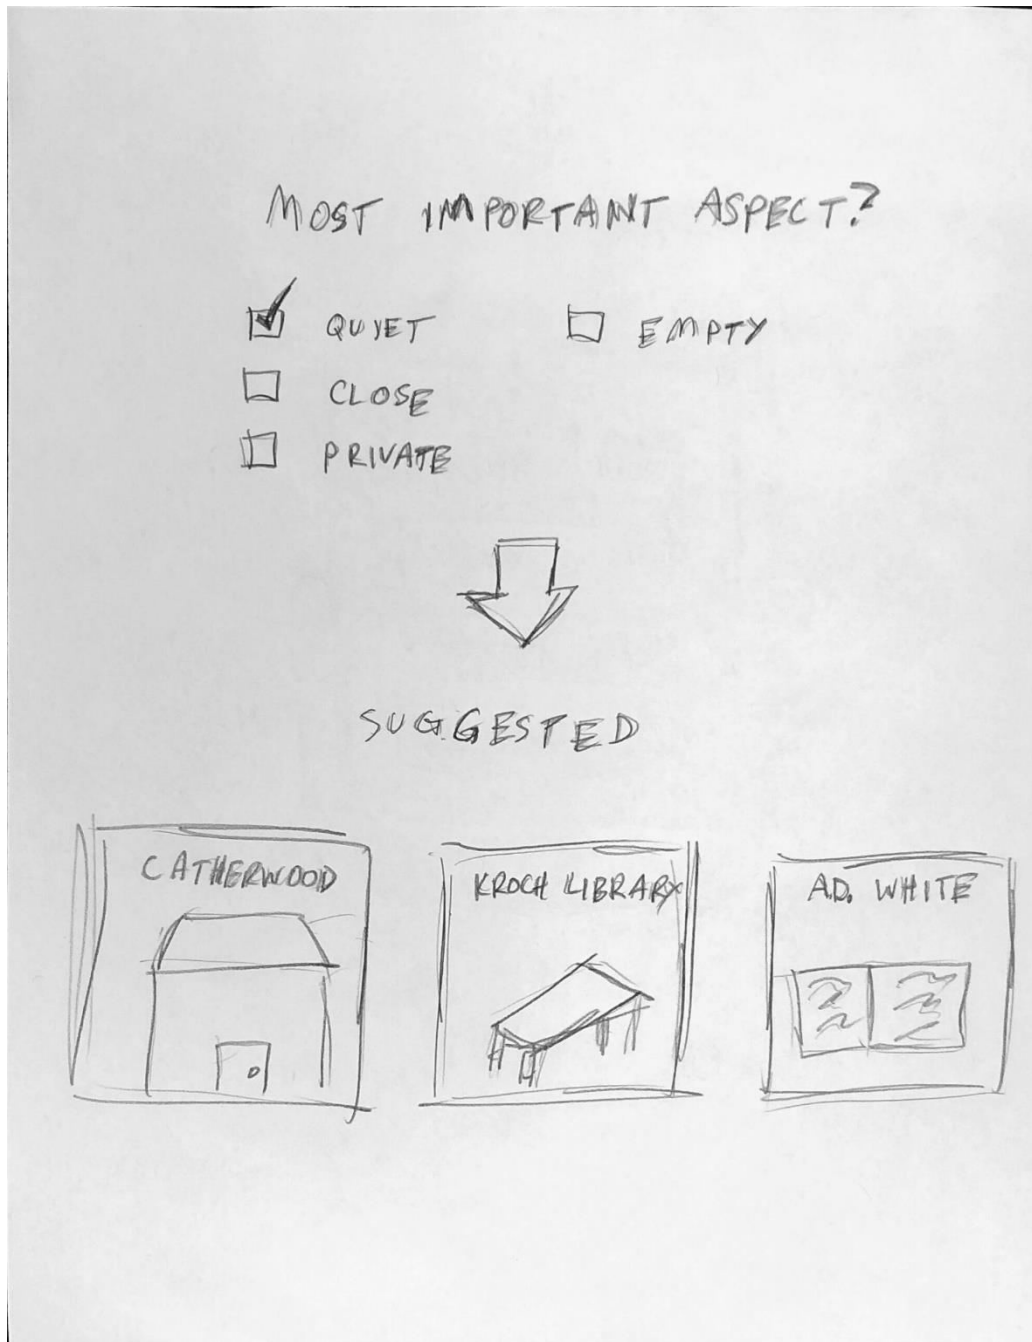 MOST IMPORTANT ASPECT?
QUIET EMPTY
CLOSE
PRIVATE
SUGGESTED
CATHERWOOD KROCH LIBRARY A.D. WHITE